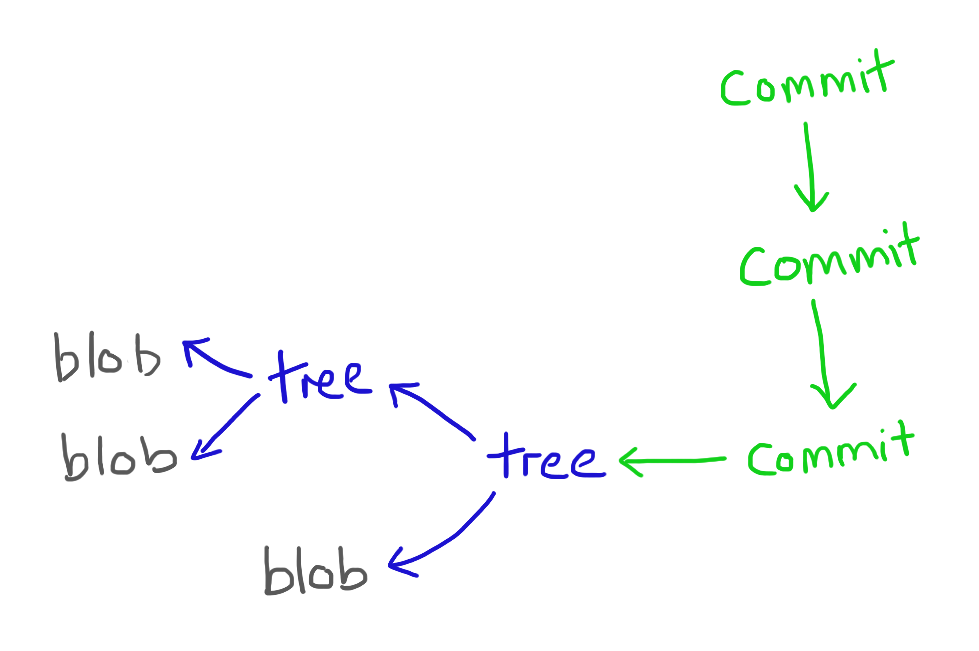 Commit
Commit
blob
tree
blob
tree
Commit
blob